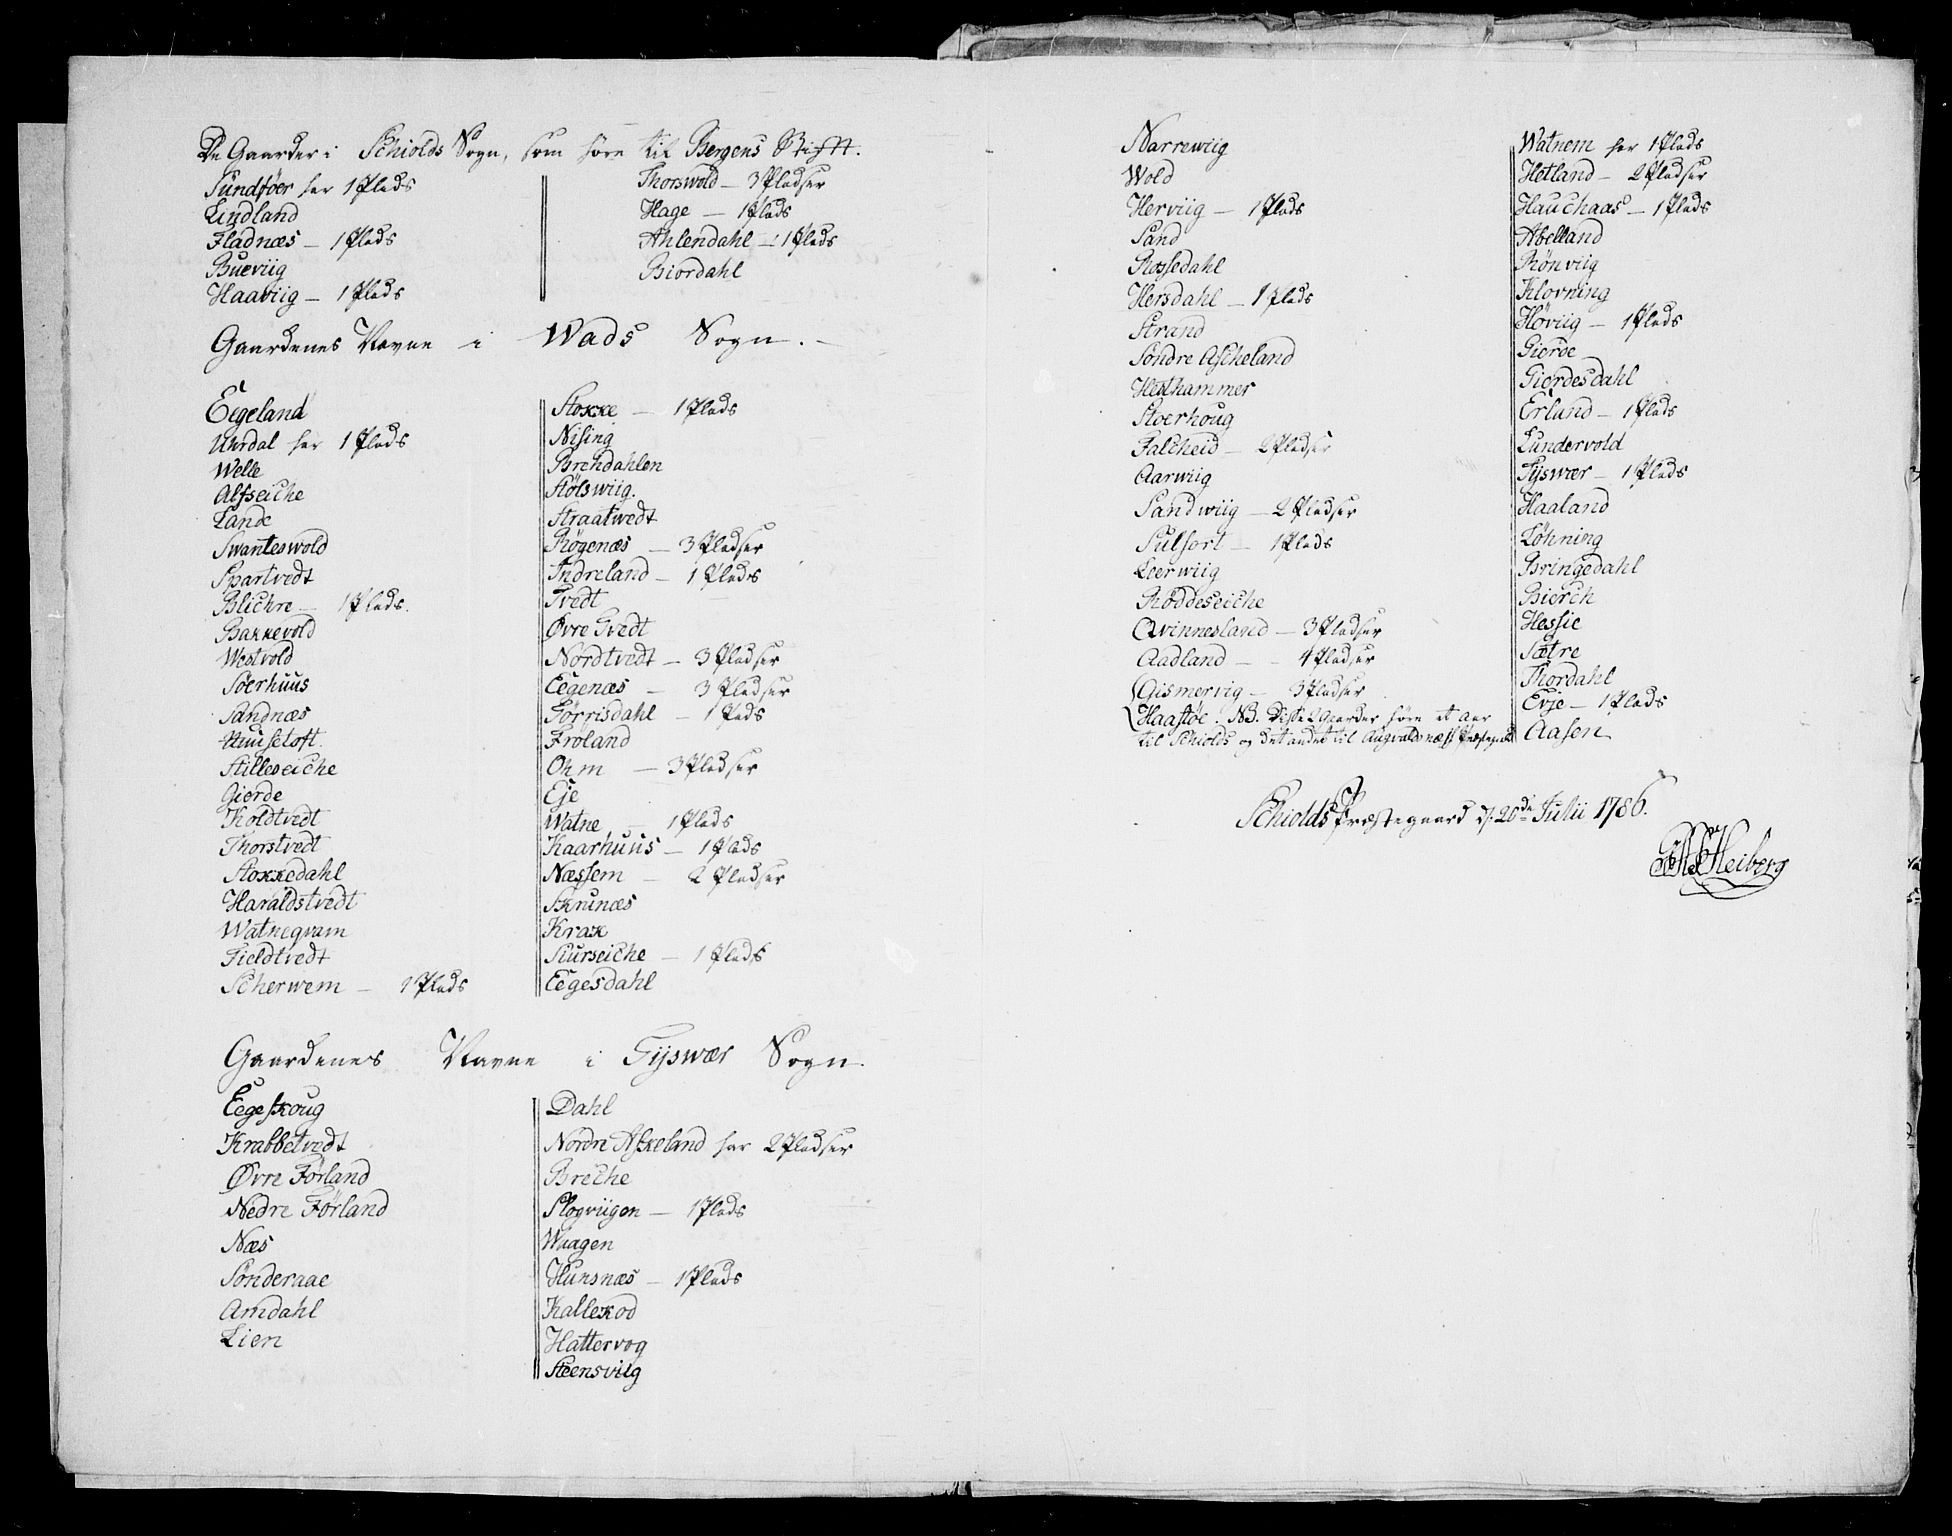 De Gaarder i Schiolds Sogn, som høre til Bergens Stift.
Sundføer har 1 Plads
Lindland
Fladnæs — 1 Plads
Bueviig
Haaviig — 1 Plads
Thorswold — 3 Pladser
Hage — 1 Plads
Ahlendahl — 1 Plads
Biordahl
Gaardenes Navne i Wads Sogn.
Eigeland
Uhrdal har 1 Plads
Welle
Alfseiche
Lande
Swanteswold
Spartvedt
Blichre — 1 Plads.
Bakkevold
Westvold
Søerhuus
Sandnæs
Huusetoft.
Stilleseiche
Gierde
Koldtvedt
Thorstvedt
Stokkedahl
Haraldstvedt
Watneqvam
Fieldtvedt
Scherwem — 1 Plads
Stokke — 1 Plads
Nising
Brendahlen
Stølswiig.
Straatwedt
Røgenæs — 3 Pladser
Indreland — 1 Plads
Tvedt
Øvre Tvedt
Nordtvedt — 3 Pladser
Eegenæs — 3 Pladser
Førrisdahl — 1 Plads
Frøland
Ohm — 3 Pladser
Eje
Watne — 1 Plads
Kaarhuus — 1 Plads
Næssem — 2 Pladser
Skrunæs
Krak
Sturseiche — 1 Plads
Eegesdahl
Gaardenes Navne i Tyswær Sogn.
Eegeskoug
Krabbetvedt
Øvre Førland
Nedre Førland
Næs
Sønderaae
Amdahl
Lien
Dahl
Nordre Askeland har 2 Pladser
Breche
Slogviigen — 1 Plads
Waagen
Hunsnæs — 1 Plads
Kallekod
Hattervog
Steensviig
Narrewiig
Wold
Herviig — 1 Plads
Sand
Rossedahl
Hersdahl — 1 Plads
Strand
Søndre Ascheland
Hesthammer
Stoerhoug
Falcheid — 2 Pladser
Aarwiig
Sandwiig — 2 Pladser
Sulfort — 1 Plads
Leerwiig
Røddeseiche
Qvinnesland — 3 Pladser
Aadland — 4 Pladser
Gismervig — 3 Pladser
Haastøe. NB. Disse 2 Gaarder høre et Aar
til Schiolds og det andet til Augvaldsnæss Præstegield
Watnem har 1 Plads
Hetland — 2 Pladser
Hauchaas — 1 Plads
Abelland
Rønviig
Klovning
Høviig — 1 Plads
Gierde
Gierdesdahl
Erland — 1 Plads
Lundervold
Tyswær — 1 Plads
Haaland
Løhning
Bringedahl
Bierch
Hessie
Sætre
Thordahl
Evje — 1 Plads
Aasen
Schiolds Præstegaard d. 26de Julii 1786.
Heiberg